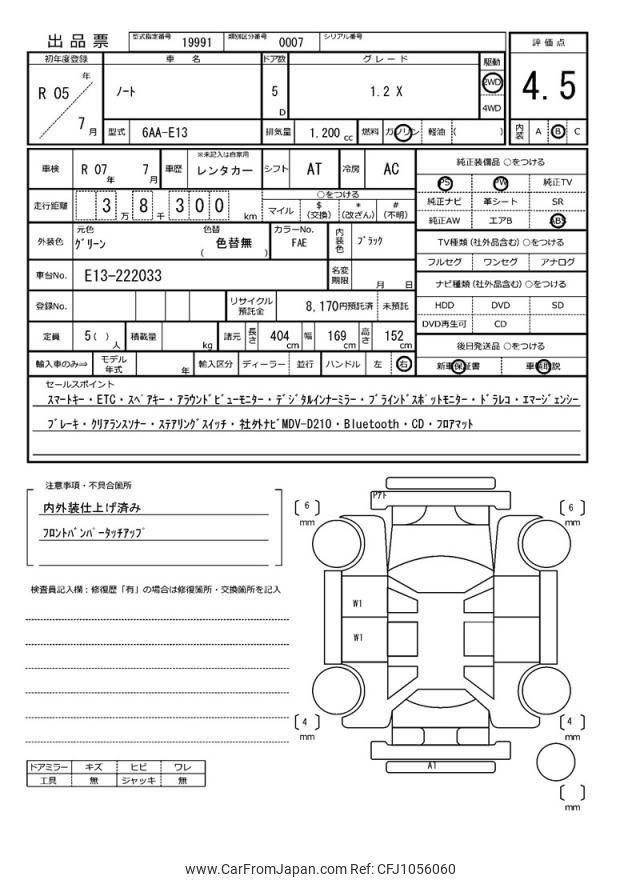 出品票
型式指定番号 19991 類別区分番号 0007 シリアル番号
評価点
4.5
内装 A B C
初年度登録 車名 ドア数 グレード 駆動
R 05 年 7 月
ノート
5 D
1.2 X
2WD
4WD
型式 6AA-E13 排気量 1,200 cc 燃料 ガソリン 軽油 ( )
車検 R 07 年 7 月 車歴 ※未記入は自家用 レンタカー シフト AT 冷房 AC
走行距離 3 万 8 千 3 0 0 km
○をつける
マイル $ (交換) * (改ざん) # (不明)
外装色 元色 グリーン 色替 色替無 ( ) カラーNo. FAE 内装色 ブラック
車台No. E13-222033 名変期限 月 日
登録No. リサイクル預託金 8,170円預託済 未預託
定員 5 ( ) 人 積載量 kg 諸元 長さ 404 cm 幅 169 cm 高さ 152 cm
輸入車のみ⇒ モデル年式 年 輸入区分 ディーラー 並行 ハンドル 左 右
純正装備品 ○をつける
PS PW 純正TV
純正ナビ 革シート SR
純正AW エアB ABS
TV種類(社外品含む)○をつける
フルセグ ワンセグ アナログ
ナビ種類(社外品含む)○をつける
HDD DVD SD
DVD再生可 CD
後日発送品 ○をつける
新車保証書 車輌取説
セールスポイント
スマートキー・ETC・スペアキー・アラウンドビューモニター・デジタルインナーミラー・ブラインドスポットモニター・ドラレコ・エマージェンシー
ブレーキ・クリアランスソナー・ステアリングスイッチ・社外ナビMDV-D210・Bluetooth・CD・フロアマット
注意事項・不具合箇所
内外装仕上げ済み
フロントバンパータッチアップ
検査員記入欄:修復歴「有」の場合は修復箇所・交換箇所を記入
ドアミラー キズ ヒビ ワレ
工具 無 ジャッキ 無
Pアト
6 mm
6 mm
W1
W1
4 mm
4 mm
A1
mm
www.CarFromJapan.com Ref: CFJ1056060